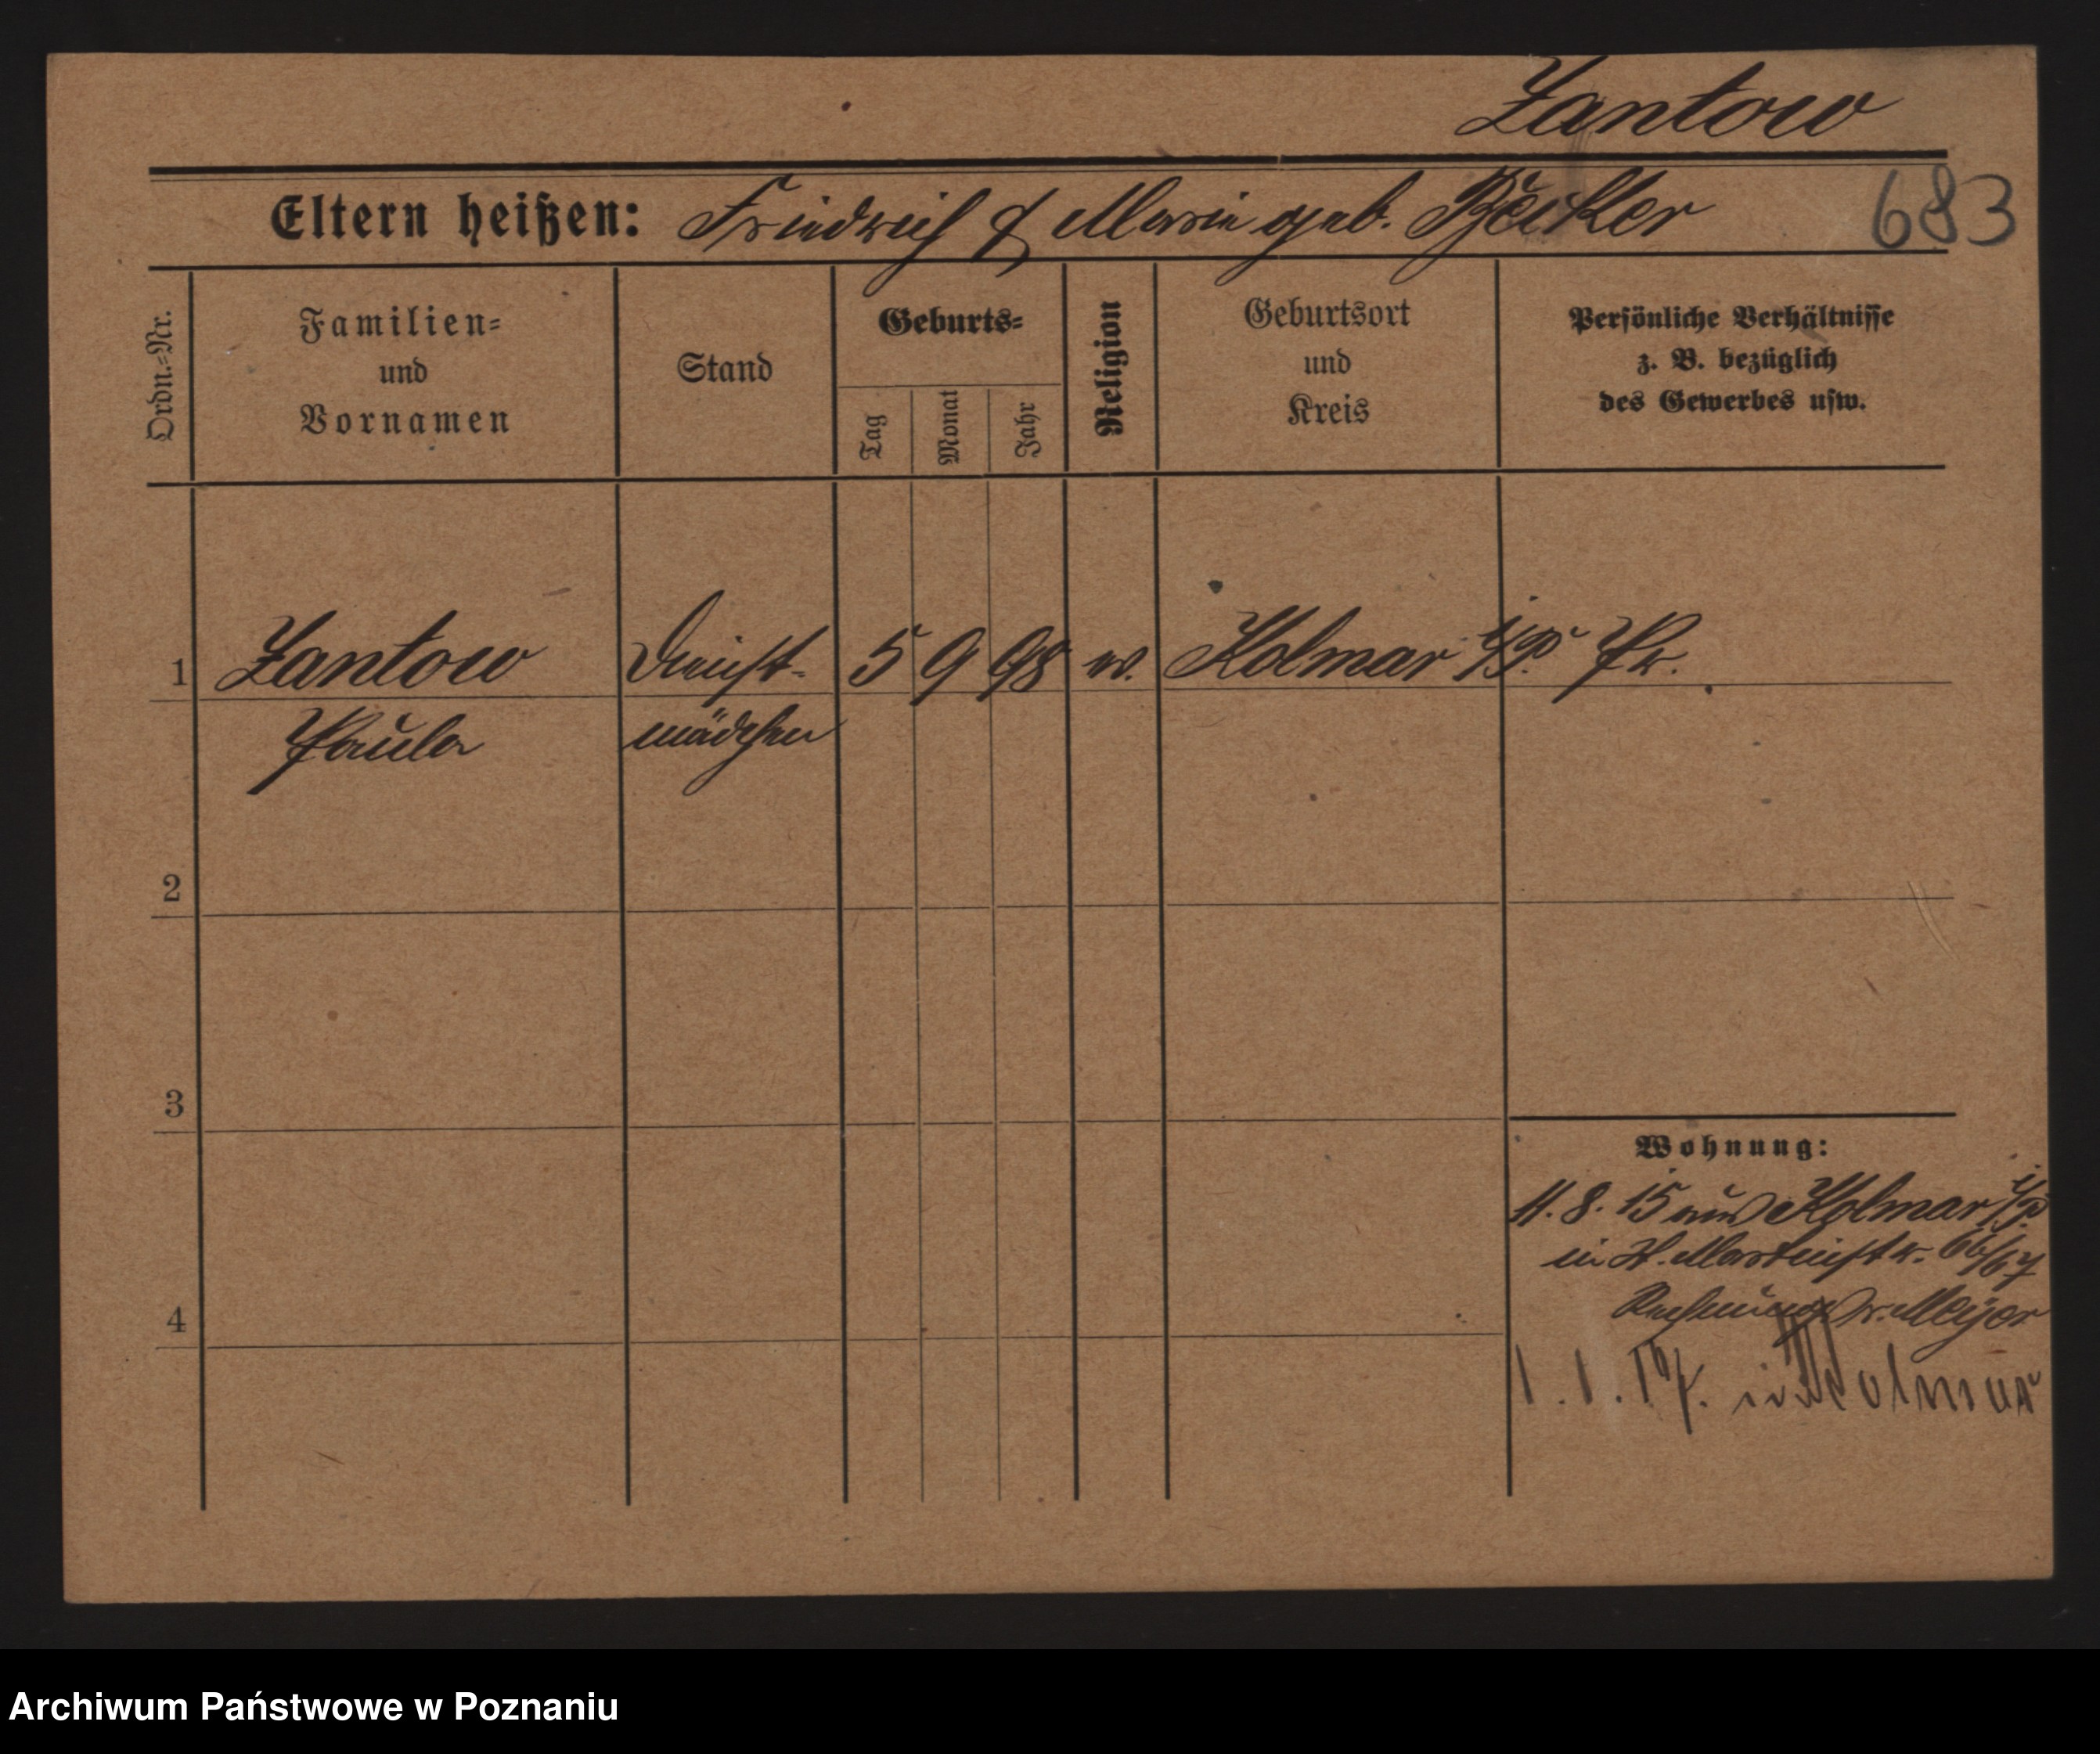 Zantow
Eltern heißen: Friedrich & Marie geb. 683
Ordn.-Nr.
Familien-
und
Vornamen
Stand
Geburts-
Tag
Monat
Jahr
Religion
Geburtsort
und
Kreis
Persönliche Verhältnisse
z. B. bezüglich
des Gewerbes usw.
1 Zantow Dienst- 5 9 98 w. Kolmar i/P.
Paula mädchen
2
3
4
Wohnung:
11. 8. 15 aus Kolmar i/P.
in St. Martinstr. 66/67
Meyer
1. 1. 17. Kolmar
Archiwum Państwowe w Poznaniu